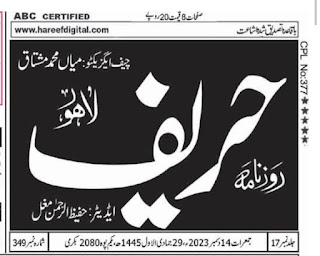 ABC CERTIFIED صفحات 8 قیمت 20 روپے باقاعدہ تصدیق شدہ اشاعت
www.hareefdigital.com
چیف ایگزیکٹو: میاں محمد مشتاق
لاہور
حریف
روزنامہ
ایڈیٹر: حفیظ الرحمٰن مغل
CPL No:377★★★★★
جلد نمبر 17 جمعرات 14 دسمبر 2023ء، 29 جمادی الاول 1445ھ، یکم پوہ 2080 بکرمی شمارہ نمبر 349